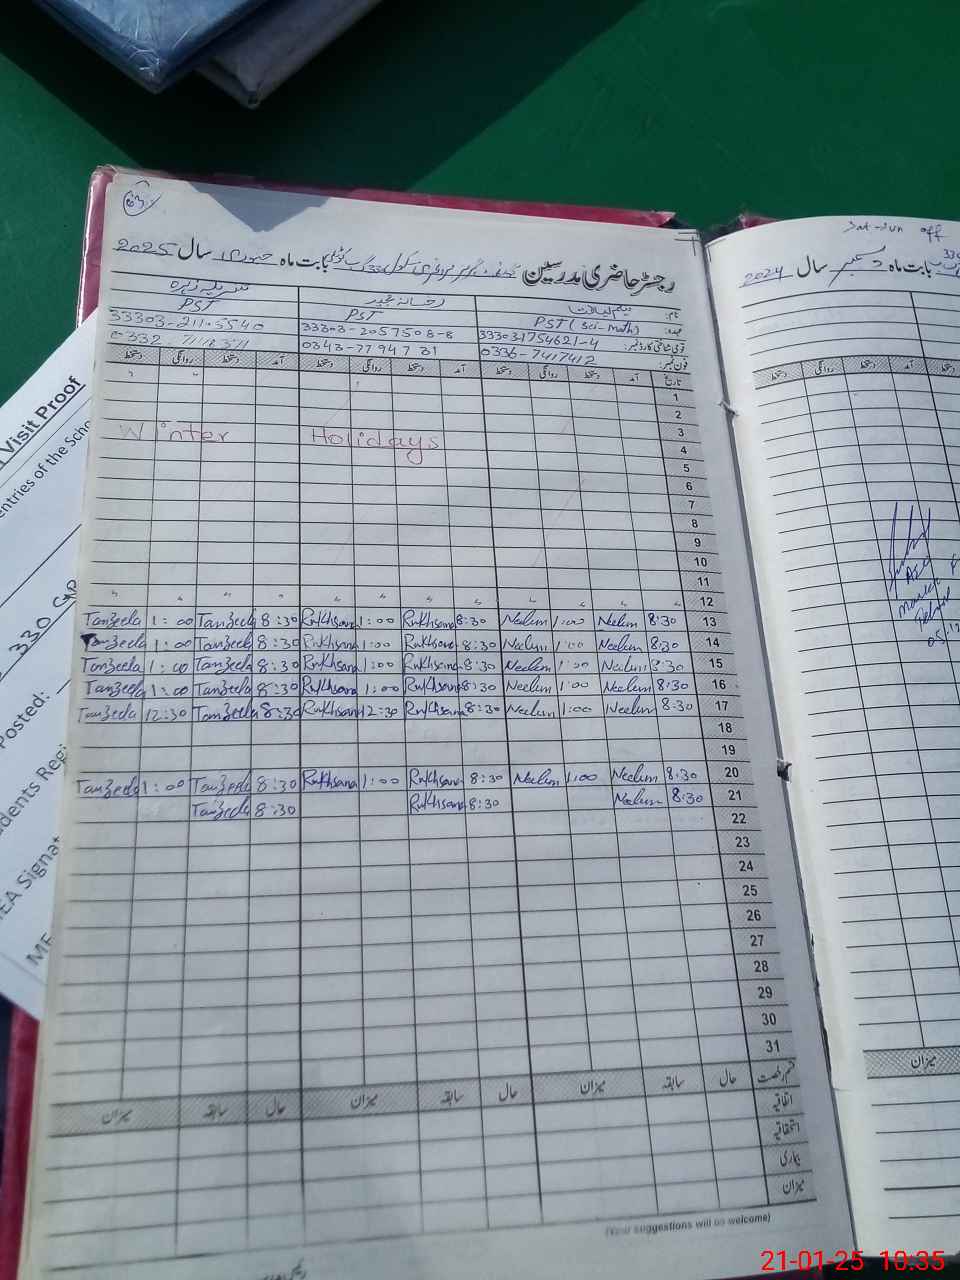 2025 سال جنوری بابت ماہ رجسٹر حاضری مدرسین
نام:
PST
PST
PST (Sci-Math) عہدہ:
33303-2057508-8
333031754621-4 قومی شناختی کارڈ نمبر:
0336-7417412 فون نمبر:
دستخط روانگی دستخط آمد دستخط روانگی دستخط آمد دستخط روانگی دستخط آمد تاریخ
1
2
Winter Holidays 3
4
5
6
7
8
9
10
11
12
Tanzeela 1:00 Tanzeela 8:30 Rukhsana 1:00 Rukhsana 8:30 Neelum 1:00 Neelum 8:30 13
Tanzeela 1:00 Tanzeela 8:30 Rukhsana 1:00 Rukhsana 8:30 Neelum 1:00 Neelum 8:30 14
Tanzeela 1:00 Tanzeela 8:30 Rukhsana 1:00 Rukhsana 8:30 Neelum 1:00 Neelum 8:30 15
Tanzeela 1:00 Tanzeela 8:30 Rukhsana 1:00 Rukhsana 8:30 Neelum 1:00 Neelum 8:30 16
Tanzeela 12:30 Tanzeela 8:30 Rukhsana 12:30 Rukhsana 8:30 Neelum 1:00 Neelum 8:30 17
18
19
Tanzeela 1:00 Tanzeela 8:30 Rukhsana 1:00 Rukhsana 8:30 Neelum 1:00 Neelum 8:30 20
Tanzeela 8:30 Rukhsana 8:30 Neelum 8:30 21
22
23
24
25
26
27
28
29
30
31
میزان سابقہ حال میزان سابقہ حال میزان سابقہ حال قسم رخصت
اتفاقیہ
استحقاقیہ
بیماری
میزان
(Your suggestions will be welcome)
Sat-Sun off
2024 سال دسمبر بابت ماہ
دستخط روانگی دستخط آمد دستخط
AEO
میزان
Visit Proof
entries of the Scho
330
Posted:
dents Regi
EA Signat
21-01-25 10:35